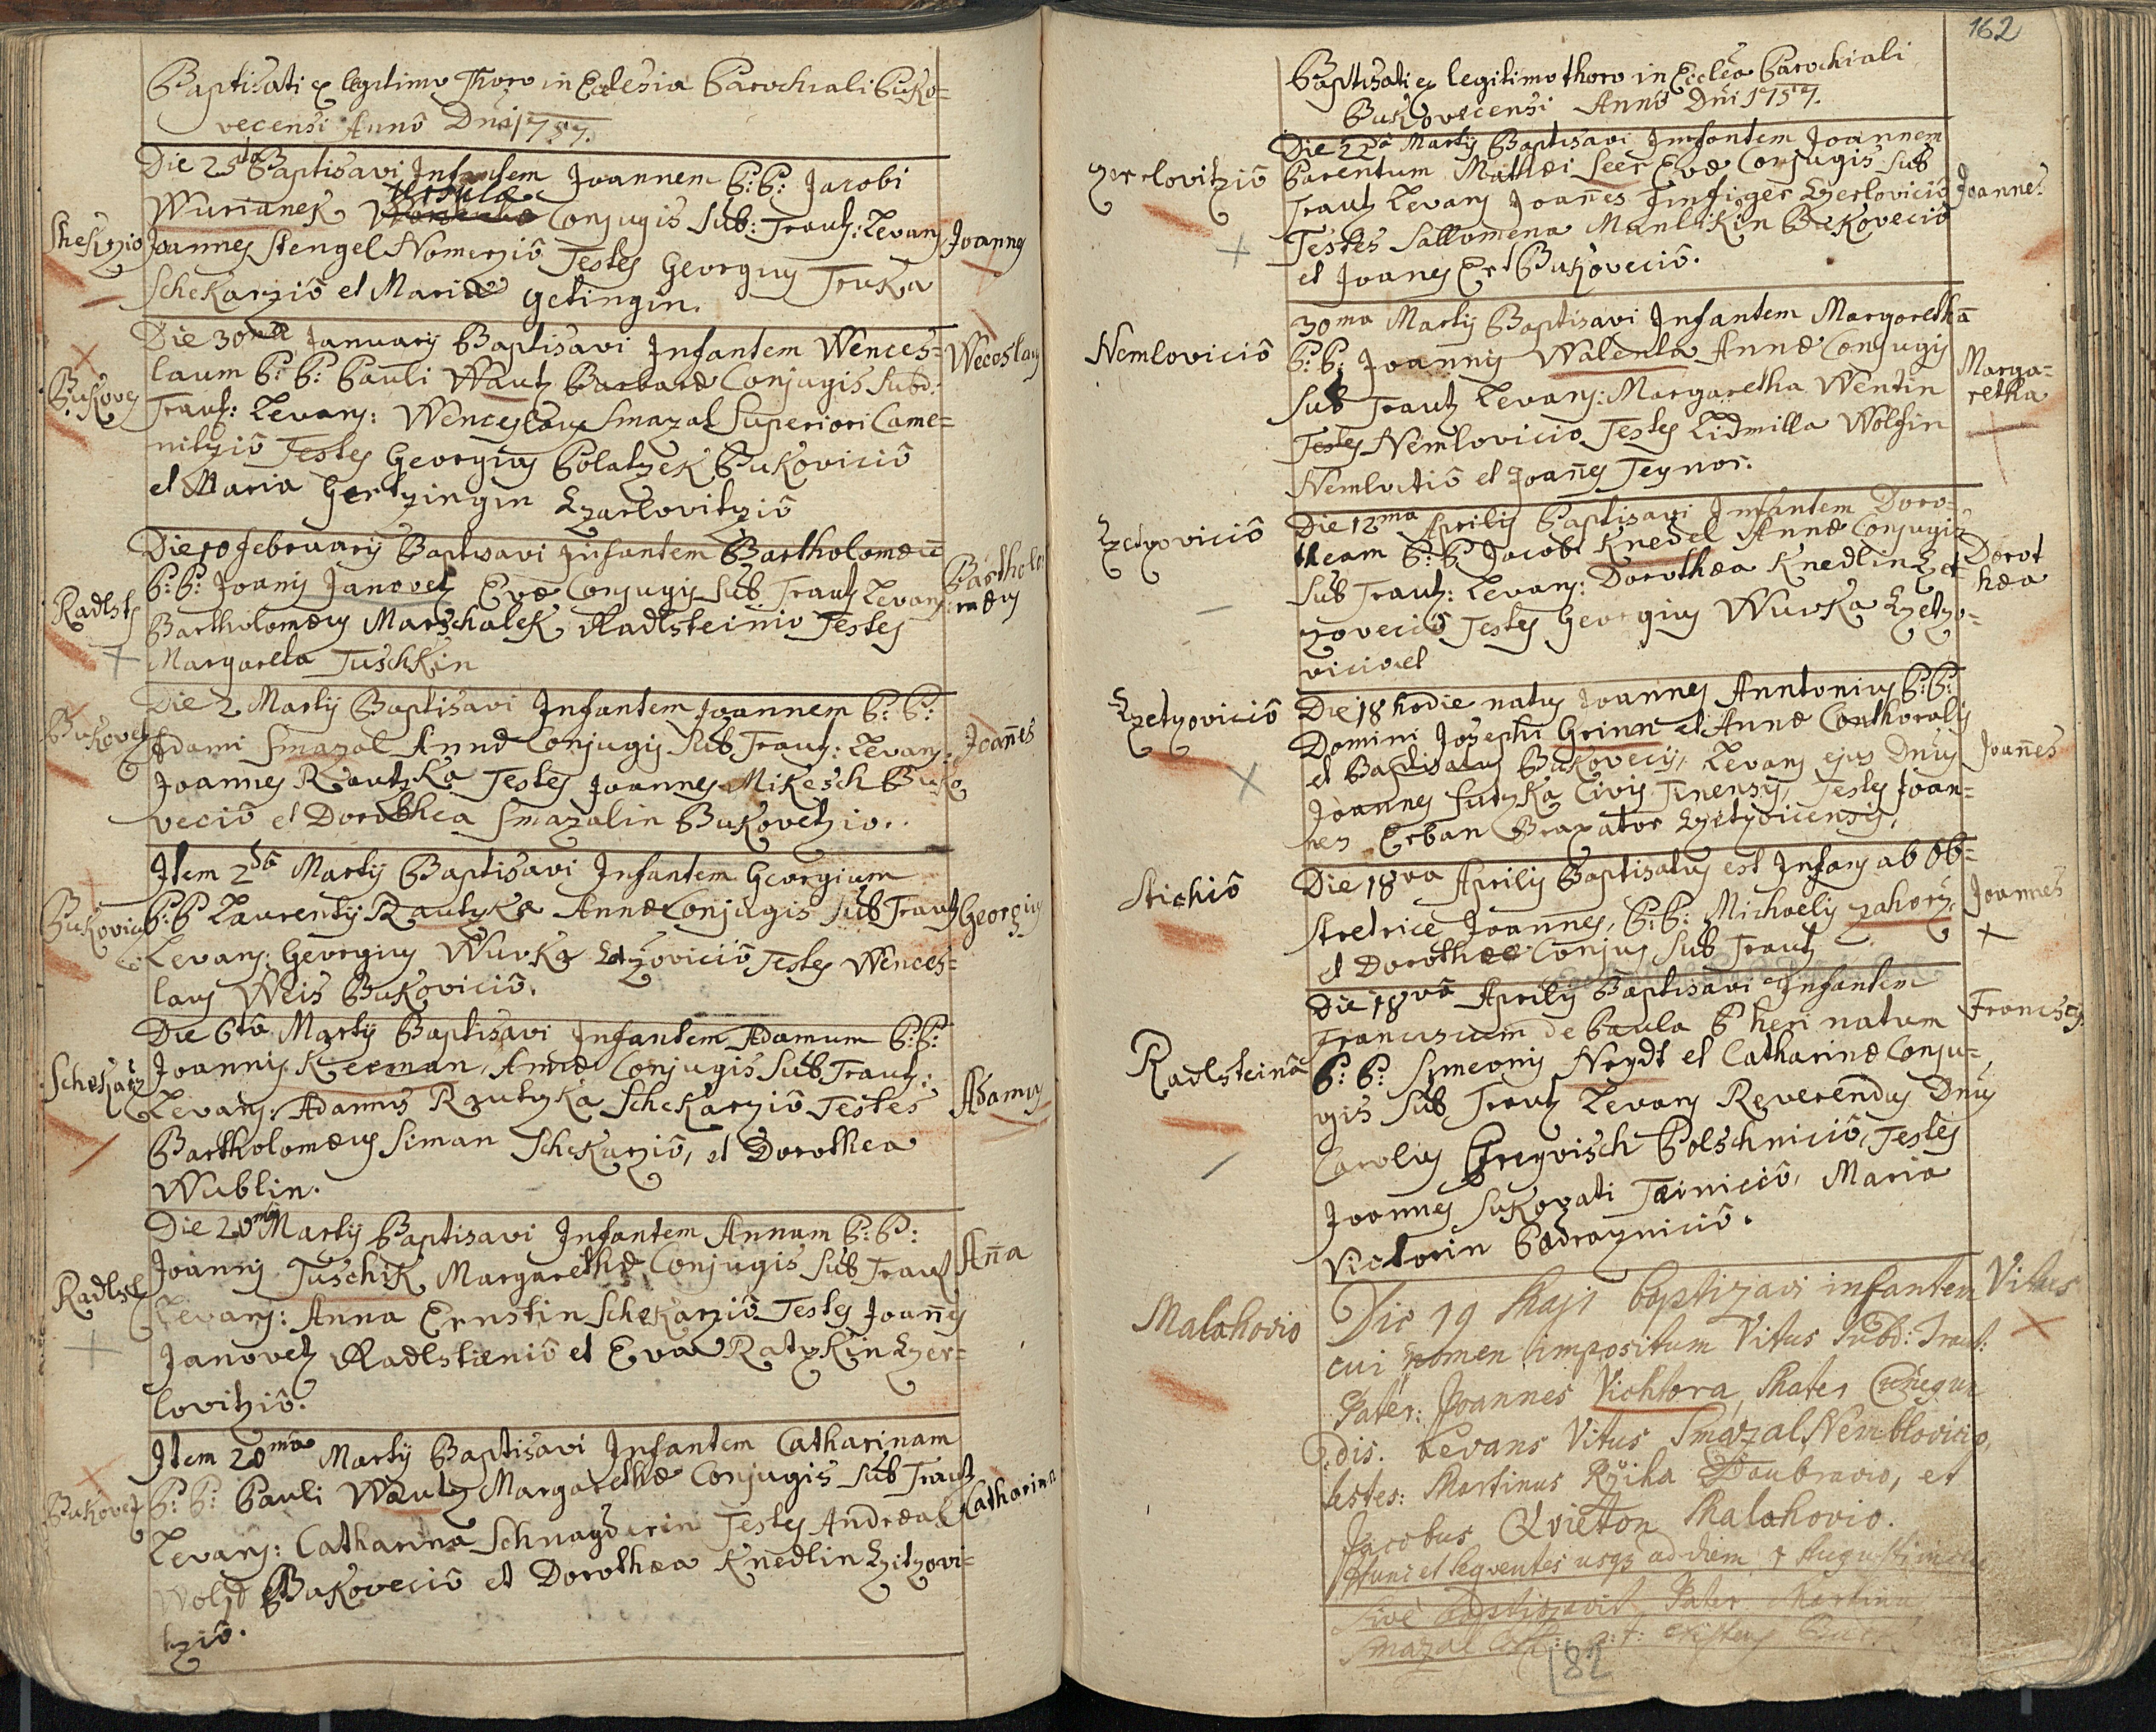 Baptisati ex legitimo Thoro in Eclesia Parochiali Buko=
vecensi Anno Dni 1757.
Die 25ta Baptisavi Infantem Joannem P: P: Jacobi
Wurianek Ursulae Conjugis Sub: Traut: Levans
Joannes Stengel Nomirziô Testes Georgius Truka
Schekarziô et Maria Getingin.
Shekrzio
Joannes
Die 30ma January Baptisavi Infantem Wences=
laum P: P: Pauli Wautz Barbarae Conjugis Subd:
Traut: Levans: Wenceslaus Smazal Superiori Came=
nitziô Testes Georgius Polatzek Bukoviciô
et Maria Hertzingin Czarlovitziô
Bukovec
Weceslaus
Die 10 February Baptisavi Infantem Bartholomaeū
P: P: Joanis Janovetz Evae Conjugis Sub Trautz Levans:
Bartholomaeus Marschalek Radlsteinio Testes
Margareta Tuschkin
Radlst
Bartholomaeus
Die 2 Martij Baptisavi Infantem Joannem P: P:
Adami Smazal Annae Conjugis Sub Traut: Levans:
Joannes Rautzka Testes Joannes Mikesch Buko
veciô et Dorothea Smazalin Bukovetzio.
Bukovetz
Joañes
Item 2da Martij Baptisavi Infantem Georgium
P: P Laurentij Rautzka Annae Conjugis Sub Trautz
Levans: Georgius Wurka Czetzoviciô Testes Wences=
laus Weis Bukoviciô.
Bukovicz
Georgius
Die 6tâ Martij Baptisavi Infantem Adamum P: P:
Joannis Kreeman, Annae Conjugis Sub Trautz:
Levans: Adamus Rautzka Schekarziô Testes
Bartholomaeus Siman Schekarziô, et Dorothea
Wublin.
Schekarz
Adamus
Die 20ma Martij Baptisavi Infantem Annam P: P:
Joannis Tuschik Margarethae Conjugis Sub Traut
Levans: Anna Ernstin Schekarziô Testes Joañes
Janovetz Radlstaeniô et Eva Ratzkin Czer=
lovitziô.
Radlst
Aña
Item 20ma Martij Baptisavi Infantem Catharinam
P: P: Pauli Wautz Margarethae Conjugis Sub Trautz
Levans: Catharina Schnayderin Testes Andreas
Wolf Bukoveciô et Dorothaea Knedlin Czitzovi=
tziô.
Bukovetz
Catharina
162
Baptisati ex legitimo thoro in Ecclea Parochiali
Bukovecensi Anno Dni 1757.
Die 22da Martij Baptisavi Infantem Joannem
Parentum Mathaei Seer Evae Conjugis Sub
Trautz Levans Joañes Finfinger Czerloviciô
Testes Sallomena Manlikin Bukoveciô
et Joanes Ert Bukoveciô.
Joannes
30ma Martij Baptisavi Infantem Margarethā
P: P: Joannis Walenta Annae Conjugis
Sub Trautz Levans: Margaretha Wentin
Testes Nemlovicio Testes Lidmilla Wolfin
Nemlovitiô et Joañes Teynor.
Nemloviciô
Marga=
retha
Die 12ma Aprilis Baptisavi Infantem Doro=
theam P: P: Jacobi Knedel Annae Conjugis
Sub Trautz: Levans: Dorothaea Knedlin Czet
zoveciô Testes Georgius Wurka Czetzo=
vicio et
Czetzoviciô
Dorot
haea
Die 18 hodie natus Joannes Anntonius P: P:
Domini Josephi Grinn et Annae Conthoralis
et Baptisatus Bukovecij, Levans ejus Dnus
Joannes Sutzka Civis Tinensis, Testes Joan=
nes Erban Braxator Czetzvicensis,
Czetzoviciô
Joañes
Die 18va Aprilis Baptisatus est Infans ab Ob=
stretrice Joannes, P: P: Michaelis Zahorz,
et Dorothae Conjus Sub Trautz
Stichiô
Joannes
Die 18va Aprilis Baptisavi Infantem
Franciscum de Paula P heri natum
P: P: Simeonis Neydt et Catharinae Conju=
gis Sub Trautz Levans Reverendus Dnus
Carolus Gregvisch Polschniciô, Testes
Joannes Sukovati Taeiniciô, Maria
Victorin Podrazniciô.
Radlsteinô
Die 19 Maji baptizavi infantem
cui nomen impositum Vitus Subd: Traut:
Pater: Joannes Vichtora, Mater Cunegun
dis. Levans Vitus Smazal Nemblovicio,
testes: Martinus Rziha Daubravio, et
Jacobus Qvieton Malahovio.
Malahovio
Vitus
Hunc et seqventes usqz ad diem 7 Augusti
Sive baptizavit Pater Martinus
Smazal
82